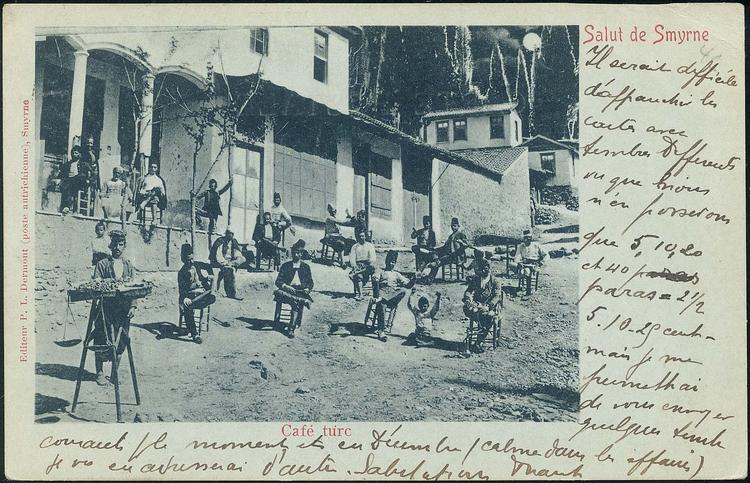 Salut de Smyrne
Il serait difficile
d'affranchir les
cartes avec
timbres différents
vu que nous
n'en possédons
que 5, 10, 20
et 40
paras = 2½
5. 10. 25 cent
mais je me
permettrai
de vous envoyer
quelques timb
courants le moment et en Décembre (calme dans les affaires)
je vous en adresserai d'autres. Salutations
Café turc
Editeur P. L. Dermont (poste autrichienne), Smyrne